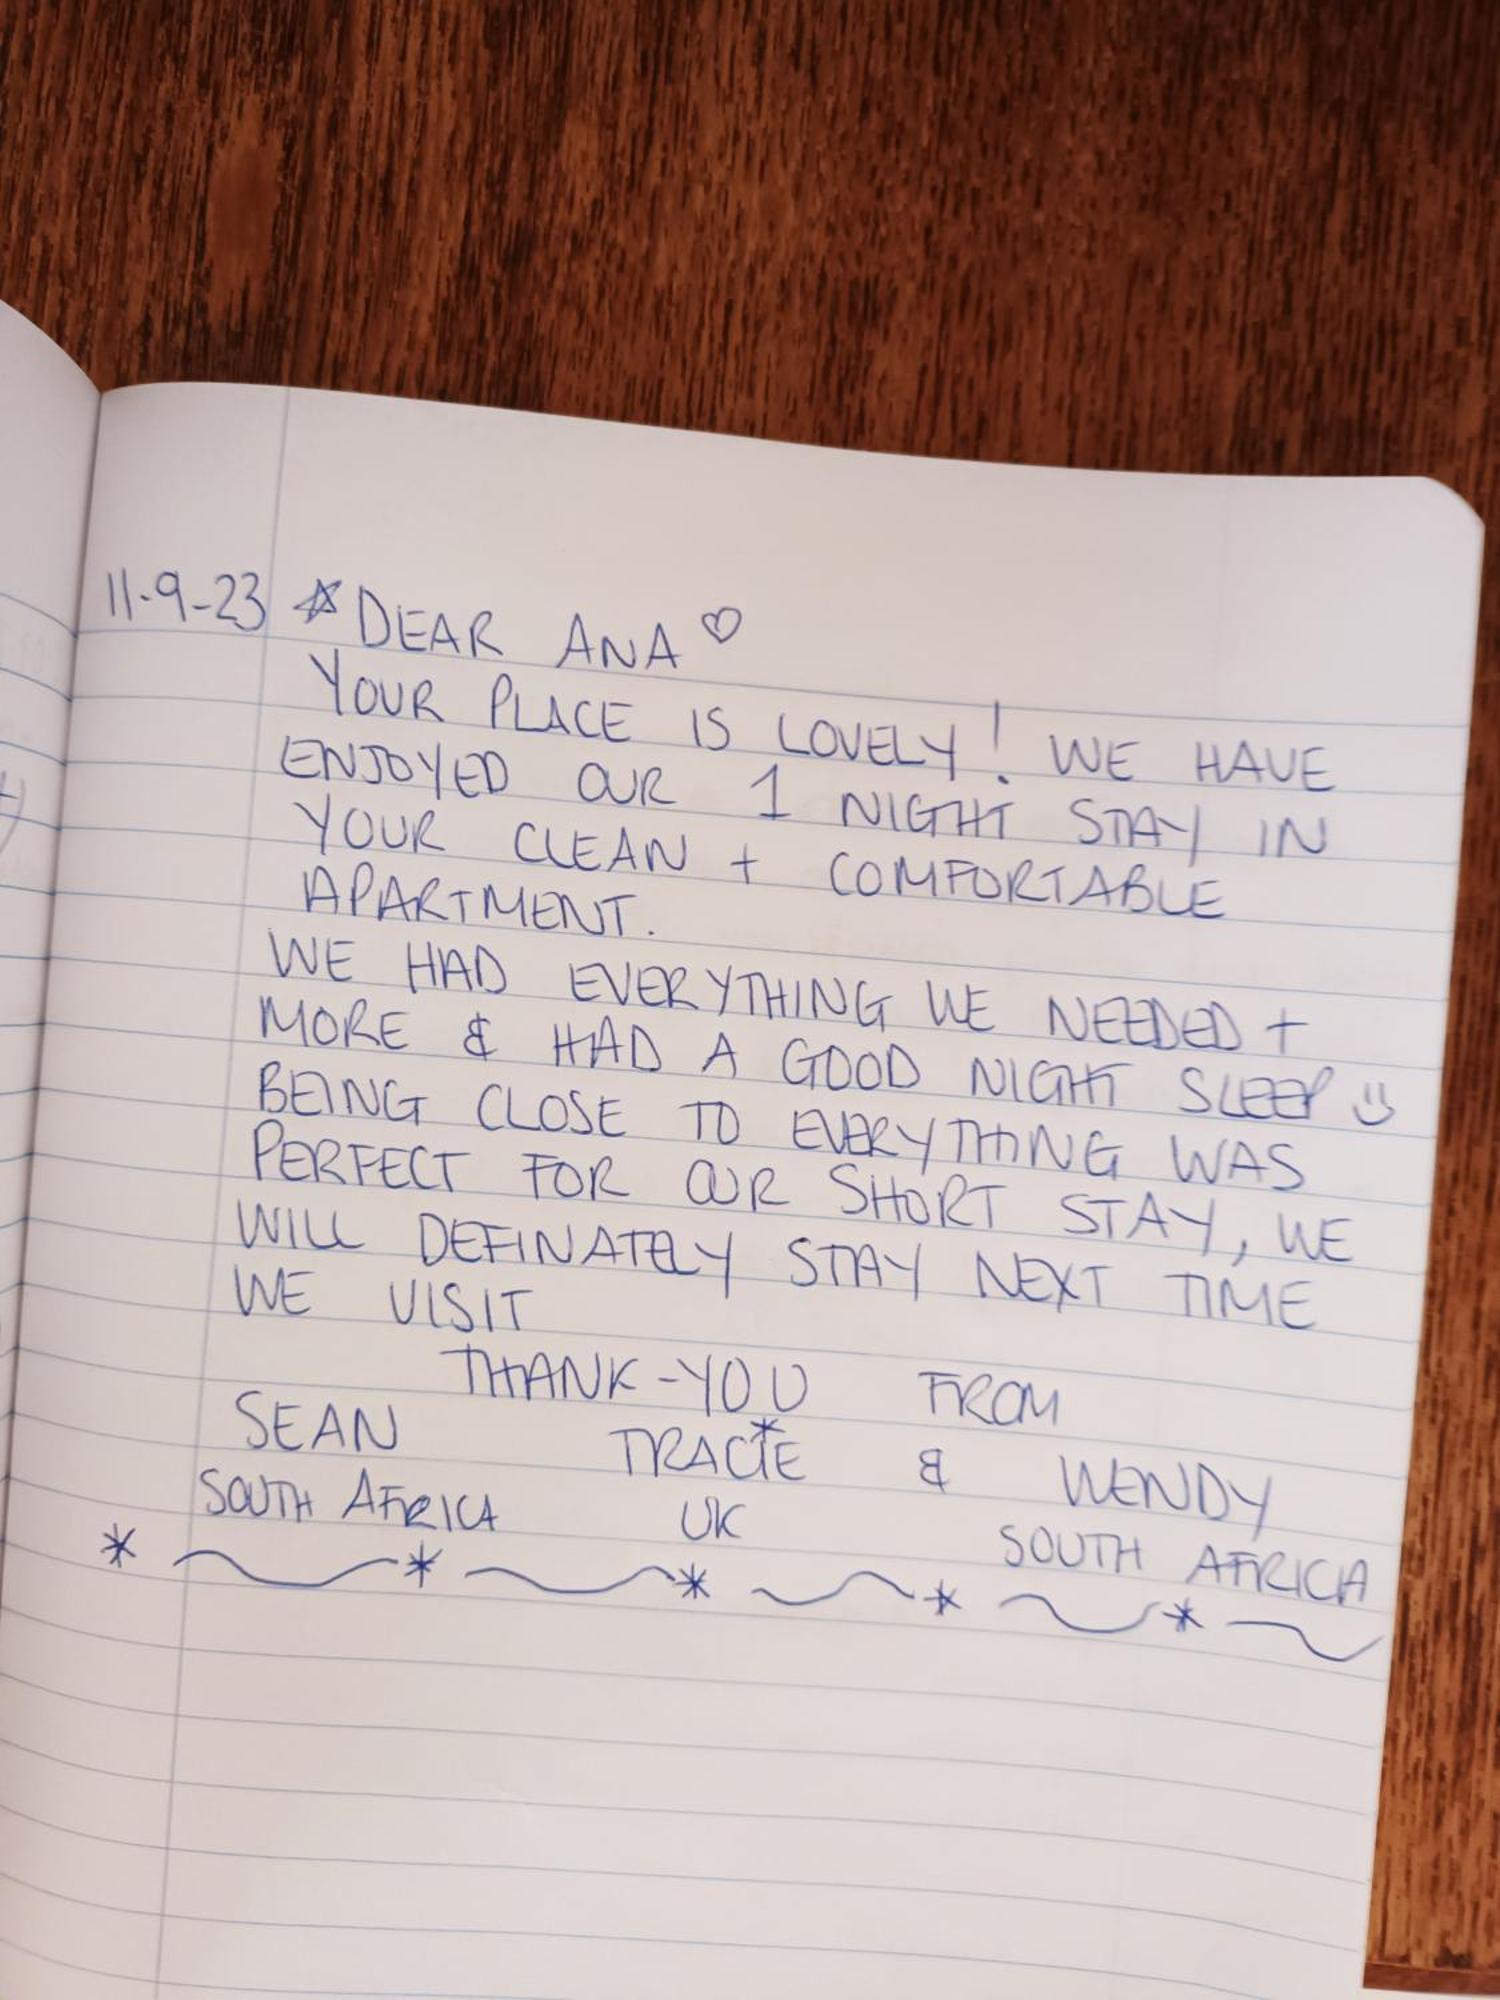 11-9-23 ☆ DEAR ANA ♡
YOUR PLACE IS LOVELY! WE HAVE
ENJOYED OUR 1 NIGHT STAY IN
YOUR CLEAN + COMFORTABLE
APARTMENT.
WE HAD EVERYTHING WE NEEDED +
MORE & HAD A GOOD NIGHT SLEEP ☺
BEING CLOSE TO EVERYTHING WAS
PERFECT FOR OUR SHORT STAY, WE
WILL DEFINATELY STAY NEXT TIME
WE VISIT
THANK-YOU FROM
SEAN TRACIE & WENDY
SOUTH AFRICA UK SOUTH AFRICA